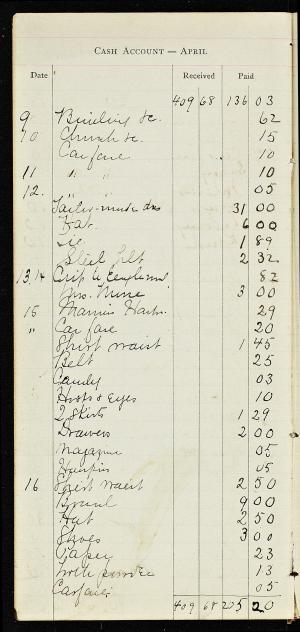 CASH ACCOUNT — APRIL
Date Received Paid
409 68 136 03
9 &c. 62
10 Church &c. 15
Carfare 10
11 " " 10
12. " " 05
Tailor-made dres 31 00
Hat. 6 00
Tie 1 89
2 32
13, 14 Trip to 82
Jno. 3 00
15 29
" Car fare 20
Shirt waist 1 45
Belt 25
Candy 03
Hooks & Eyes 10
2 Skirts 1 29
Drawers 2 00
Magazine 05
Hairpin 05
16 Shirt waist 2 50
9 00
Hat 2 50
3 00
Paper 23
Tooth powder 13
Carfare 05
409 68 205 20